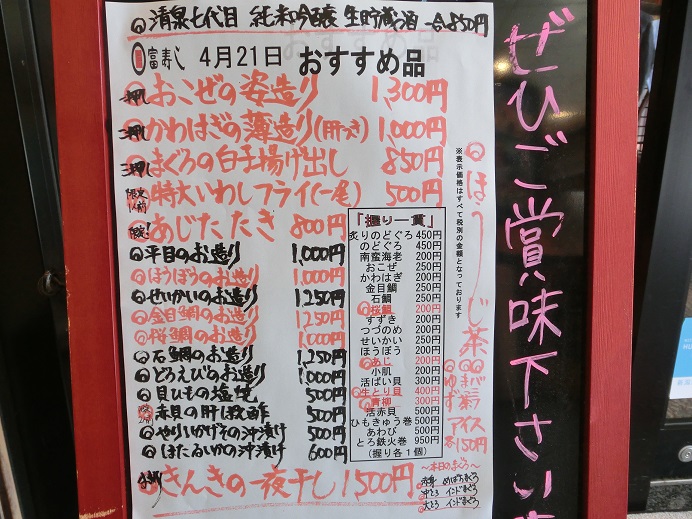 清泉七代目 純米吟醸 生貯蔵酒 一合 850円
富寿し 4月21日 おすすめ品
一押し おこぜの姿造り 1,300円
二押し かわはぎの薄造り(肝つき) 1,000円
三押し まぐろの白子揚げ出し 850円
限定 特大いわしフライ(一尾) 500円
限定! あじたたき 800円
平目のお造り 1,000円
ほうぼうのお造り 1,000円
せいかいのお造り 1,250円
金目鯛のお造り 1,250円
桜鯛のお造り 1,000円
石鯛のお造り 1,250円
どろえびのお造り 1,000円
貝ひもの塩焼 500円
赤貝の肝ポン酢 500円
やりいかげその沖漬け 500円
ほたるいかの沖漬け 600円
きんきの一夜干し 1500円
「握り一貫」
炙りのどぐろ 450円
のどぐろ 450円
南蛮海老 200円
おこぜ 250円
かわはぎ 200円
金目鯛 250円
石鯛 250円
桜鯛 200円
すずき 200円
つづのめ 200円
せいかい 250円
ほうぼう 200円
あじ 200円
小肌 200円
活ばい貝 300円
生とり貝 400円
青柳 300円
活赤貝 500円
ひもきゅう巻 500円
あわび 500円
とろ鉄火巻 950円
(握り各1個)
~本日のまぐろ~
赤身 めばちまぐろ
中とろ インドまぐろ
大とろ インドまぐろ
※表示価格はすべて税別の金額となっております
ほうじ茶
ゆず
アイス
各150円
ぜひご賞味下さい